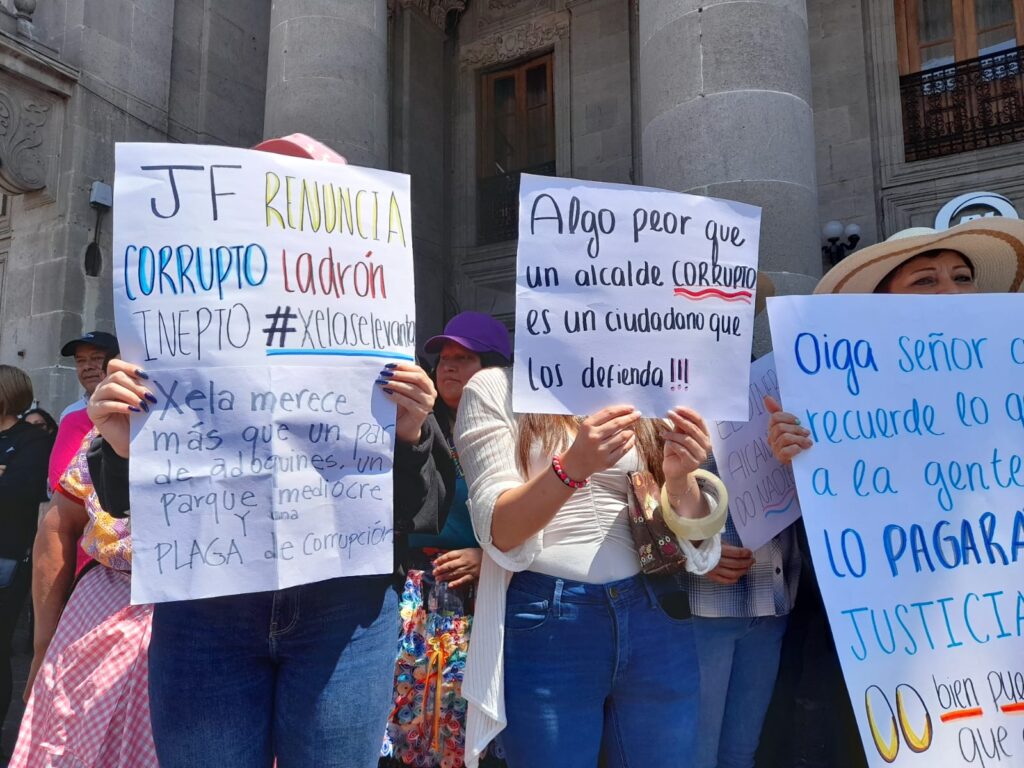 JF RENUNCIA
CORRUPTO LADRÓN
INEPTO #xelaselevanta
Xela merece
más que un par
de adoquines, un
parque mediocre
Y una
PLAGA de corrupción
Algo peor que
un alcalde CORRUPTO
es un ciudadano que
los defienda !!!
Oiga señor
recuerde lo
a la gente
LO PAGARA
JUSTICIA
bien
que